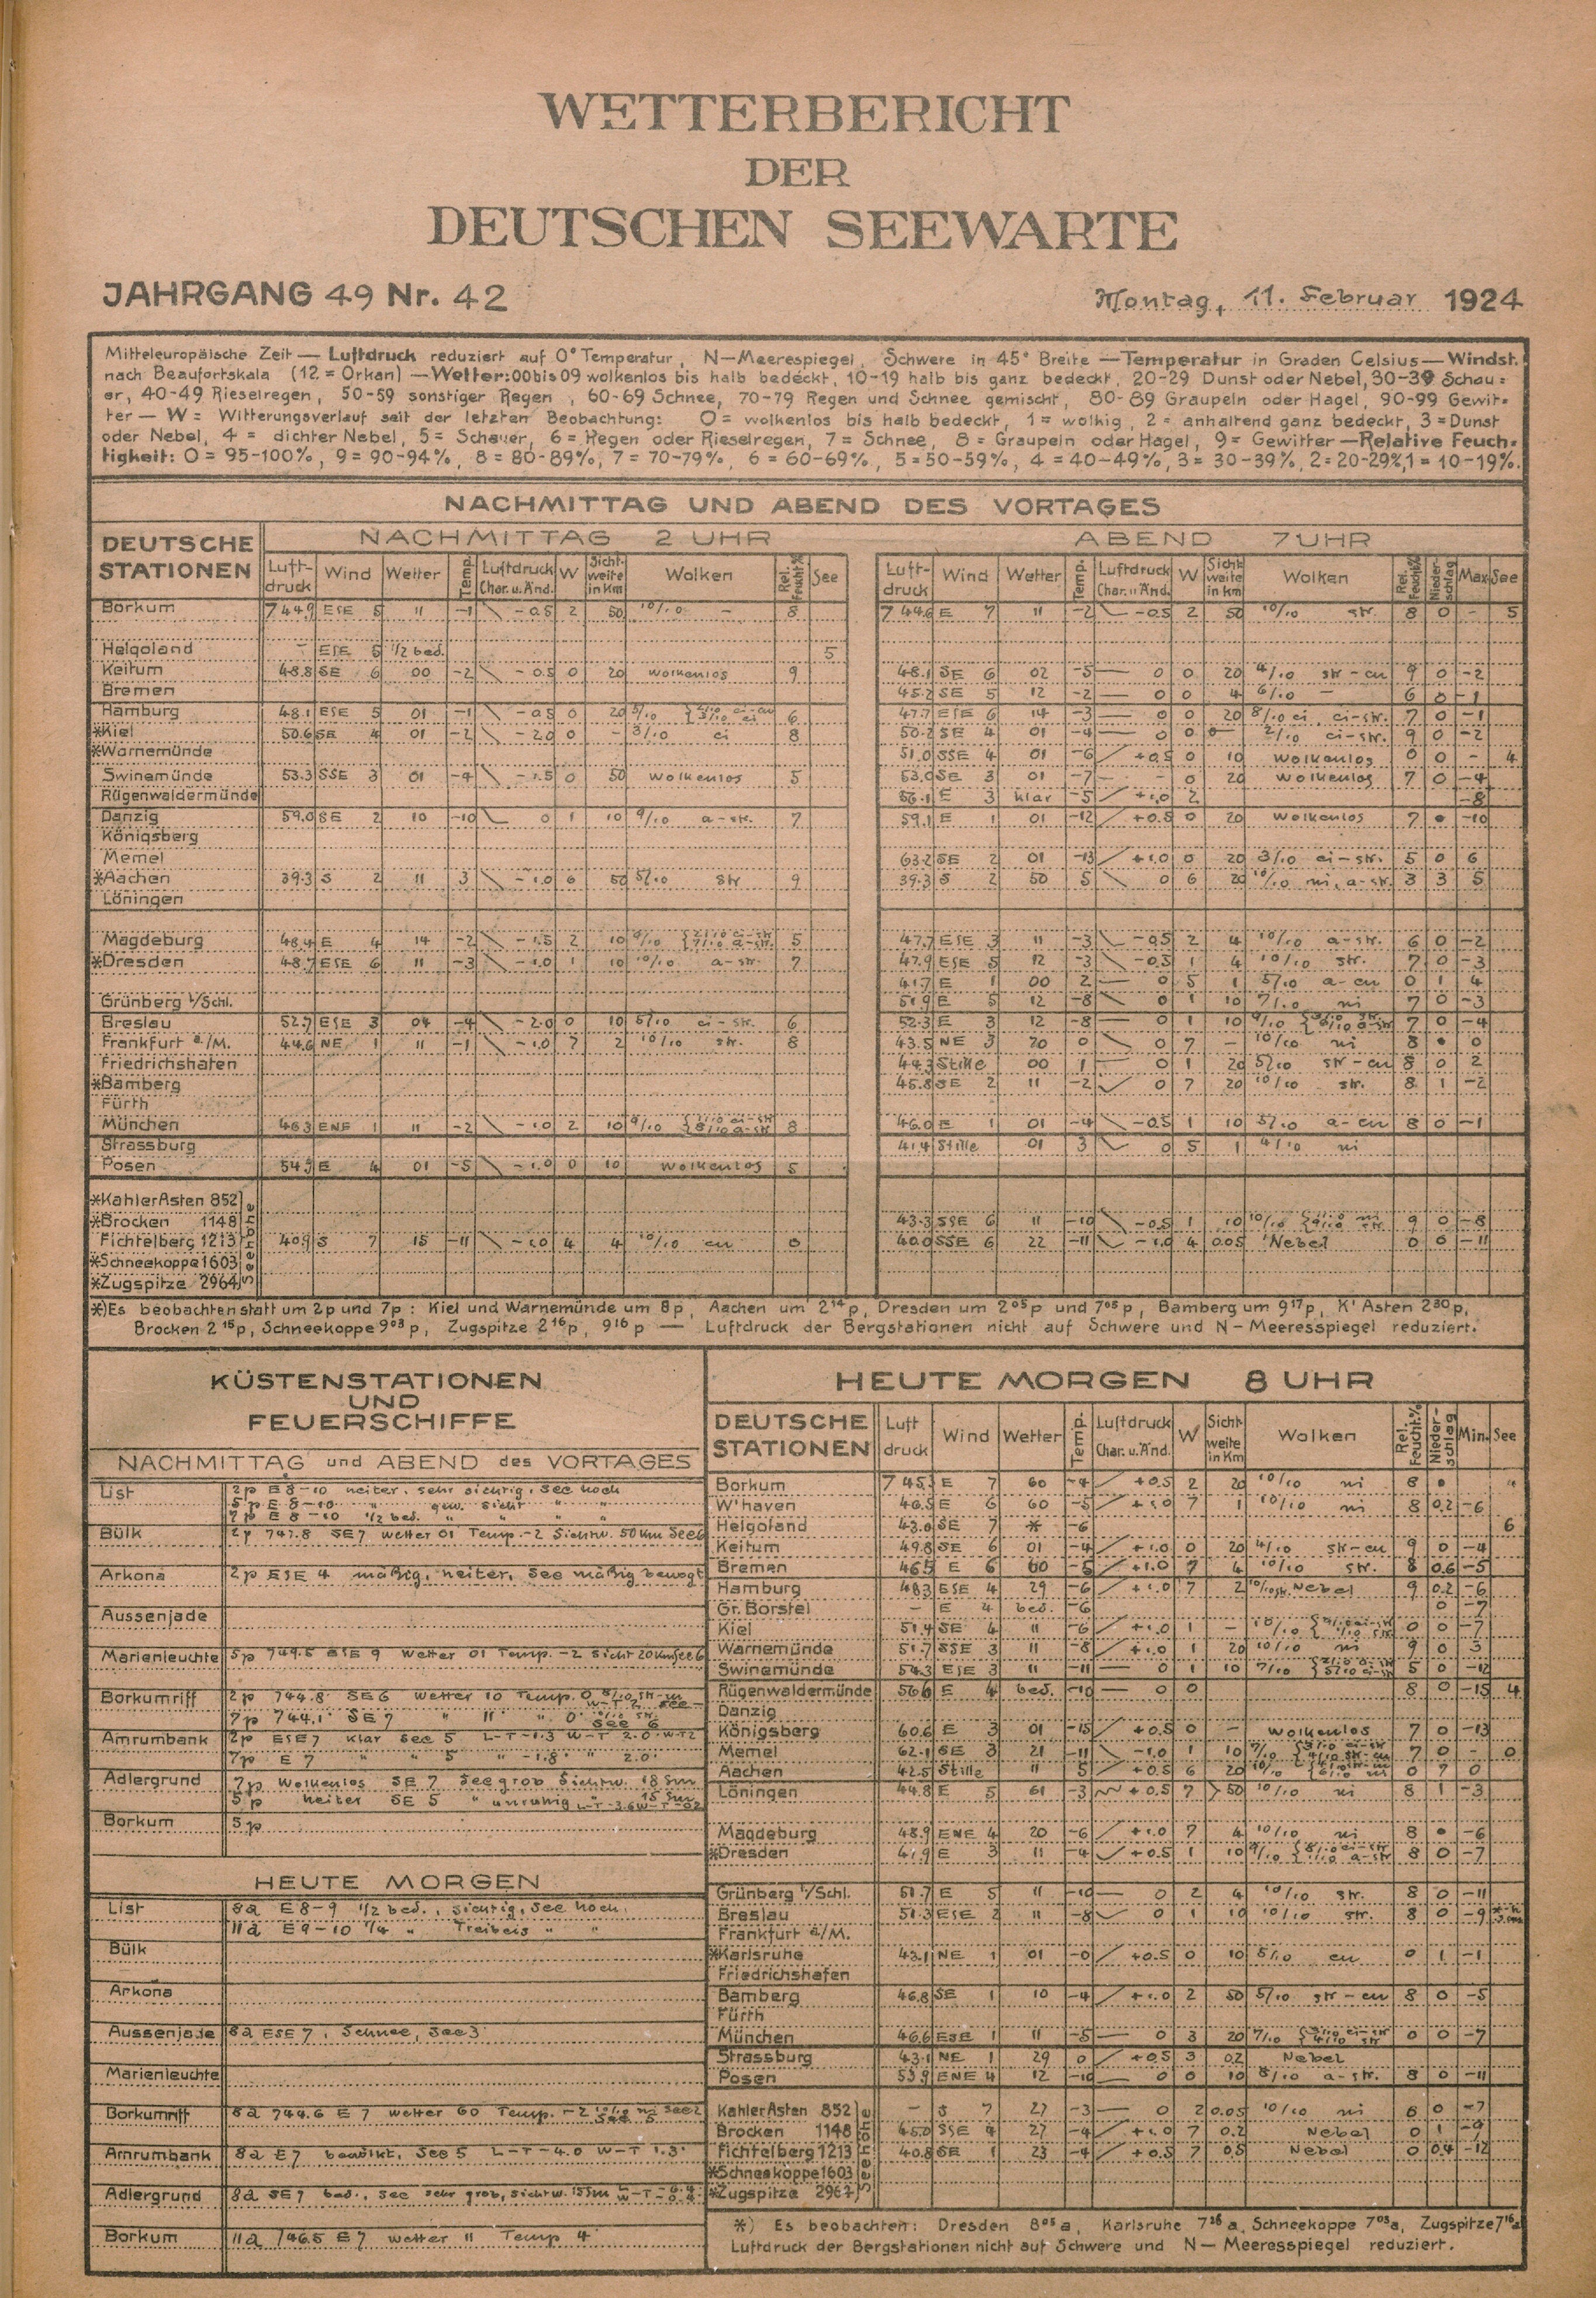 WETTERBERICHT
DER
DEUTSCHEN SEEWARTE
JAHRGANG 49 Nr. 42
Montag, 11. Februar 1924
Mitteleuropäische Zeit — Luftdruck reduziert auf 0° Temperatur, N—Meerespiegel, Schwere in 45° Breite — Temperatur in Graden Celsius — Windst.
nach Beaufortskala (12 = Orkan) — Wetter: 00 bis 09 wolkenlos bis halb bedeckt, 10-19 halb bis ganz bedeckt, 20-29 Dunst oder Nebel, 30-39 Schau=
er, 40-49 Rieselregen, 50-59 sonstiger Regen, 60-69 Schnee, 70-79 Regen und Schnee gemischt, 80-89 Graupeln oder Hagel, 90-99 Gewit-
ter — W = Witterungsverlauf seit der letzten Beobachtung: 0 = wolkenlos bis halb bedeckt, 1 = wolkig, 2 = anhaltend ganz bedeckt, 3 = Dunst
oder Nebel, 4 = dichter Nebel, 5 = Schauer, 6 = Regen oder Rieselregen, 7 = Schnee, 8 = Graupeln oder Hagel, 9 = Gewitter — Relative Feuch-
tigkeit: 0 = 95-100%, 9 = 90-94%, 8 = 80-89%, 7 = 70-79%, 6 = 60-69%, 5 = 50-59%, 4 = 40-49%, 3 = 30-39%, 2 = 20-29%, 1 = 10-19%.
NACHMITTAG UND ABEND DES VORTAGES
DEUTSCHE STATIONEN
NACHMITTAG 2 UHR
ABEND 7 UHR
Luft-druck Wind Wetter Temp. Luftdruck Char. u. Änd. W Sicht-weite in Km Wolken Rel. Feucht.% See
Luft-druck Wind Wetter Temp. Luftdruck Char. u. Änd. W Sicht weite in Km Wolken Rel. Feucht.% Nieder-schlag Max. See
Borkum 744.9 ESE 5 11 -1 -0.5 2 50 10/10 - 8 744.6 E 7 11 -2 -0.5 2 50 10/10 str. 8 0 - 5
Helgoland - ESE 5 1/2 bed. 5
Keitum 48.8 SE 6 00 -2 -0.5 0 20 wolkenlos 9 48.1 SE 6 02 -5 0 0 20 4/10 str-cu 9 0 -2
Bremen 45.2 SE 5 12 -2 0 0 4 6/10 - 6 0 -1
Hamburg 48.1 ESE 5 01 -1 -0.5 0 20 5/10 6 47.7 ESE 6 14 -3 0 0 20 8/10 ci, ci-str. 7 0 -1
*Kiel 50.6 SE 4 01 -2 -2.0 0 - 3/10 ci 8 50.2 SE 4 01 -4 0 0 2/10 ci-str. 9 0 -2
*Warnemünde 51.0 SSE 4 01 -6 +0.5 0 10 wolkenlos 0 0 - 4
Swinemünde 53.3 SSE 3 01 -4 -1.5 0 50 wolkenlos 5 53.0 SE 3 01 -7 - - 0 20 wolkenlos 7 0 -4
Rügenwaldermünde 56.1 E 3 klar -5 +1.0 2 -8
Danzig 59.0 SE 2 10 -10 0 1 10 9/10 a-str. 7 59.1 E 1 01 -12 +0.5 0 20 wolkenlos 7 • -10
Königsberg
Memel 63.2 SE 2 01 -13 +1.0 0 20 3/10 ci-str. 5 0 6
*Aachen 39.3 S 2 11 3 -1.0 6 50 5/10 str 9 39.3 S 2 50 5 0 6 20 10/10 ni, a-str. 3 3 5
Löningen
Magdeburg 48.4 E 4 14 -2 -1.5 2 10 5 47.7 ESE 3 11 -3 -0.5 2 4 10/10 a-str. 6 0 -2
*Dresden 48.7 ESE 6 11 -3 -1.0 1 10 10/10 a-str. 7 47.9 ESE 5 12 -3 -0.5 1 4 10/10 str. 7 0 -3
41.7 E 1 00 2 0 5 1 5/10 a-cu 0 1 4
Grünberg i/Schl. 51.9 E 5 12 -8 0 1 10 7/10 ni 7 0 -3
Breslau 52.7 ESE 3 04 -4 -2.0 0 10 5/10 ci-str. 6 52.3 E 3 12 -8 0 1 10 9/10 7 0 -4
Frankfurt a./M. 44.6 NE 1 11 -1 -1.0 7 2 10/10 str. 8 43.5 NE 3 70 0 0 7 - 10/10 ni 8 • 0
Friedrichshafen 44.3 Stille 00 1 0 1 20 5/10 str-cu 8 0 2
*Bamberg 45.8 SE 2 11 -2 0 7 20 10/10 str. 8 1 -2
Fürth
München 46.3 ENE 1 11 -2 -1.0 2 10 9/10 8 46.0 E 1 01 -4 -0.5 1 10 5/10 a-cu 8 0 -1
Strassburg 41.4 Stille 01 3 0 5 1 4/10 ni
Posen 54.5 E 4 01 -5 -1.0 0 10 wolkenlos 5
*Kahler Asten 852
*Brocken 1148 43.3 SSE 6 11 -10 -0.5 1 10 10/10 9 0 -8
Fichtelberg 1213 40.9 S 7 15 -11 -1.0 4 4 10/10 cu 0 40.0 SSE 6 22 -11 -1.0 4 0.05 Nebel 0 0 -11
*Schneekoppe 1603
*Zugspitze 2964
Seehöhe
*) Es beobachten statt um 2p und 7p: Kiel und Warnemünde um 8p, Aachen um 2¹⁴p, Dresden um 2⁰⁵p und 7⁰⁵p, Bamberg um 9¹⁷p, K' Asten 2³⁰p,
Brocken 2¹⁵p, Schneekoppe 9⁰³p, Zugspitze 2¹⁶p, 9¹⁶p — Luftdruck der Bergstationen nicht auf Schwere und N—Meeresspiegel reduziert.
KÜSTENSTATIONEN
UND
FEUERSCHIFFE
NACHMITTAG und ABEND des VORTAGES
List 2p E 8-10 heiter, sehr sichtig, See hoch
5p E 8-10 " gew. sicht " "
7p E 8-10 1/2 bed. " " "
Bülk 2p 747.8 SE 7 Wetter 01 Temp. -2 Sichtw. 50 Km See 6
Arkona 2p ESE 4 mäßig, heiter, See mäßig bewegt
Aussenjade
Marienleuchte 5p 749.5 ESE 9 Wetter 01 Temp. -2 Sicht 20 Km See 6
Borkumriff 2p 744.8 SE 6 Wetter 10 Temp. 0
7p 744.1 SE 7 " 11 " 0 See 6
Amrumbank 2p ESE 7 klar See 5 L-T -1.3 W-T 2.0
7p E 7 " " 5 " -1.8 " 2.0
Adlergrund 7p Wolkenlos SE 7 See grob Sichtw. 18 Sm
5p heiter SE 5 " unruhig " 15 Sm
Borkum 5p
HEUTE MORGEN
List 8a E 8-9 1/2 bed., sichtig, See hoch.
11a E 9-10 1/4 " Treibeis " "
Bülk
Arkona
Aussenjade 8a ESE 7, Schnee, See 3
Marienleuchte
Borkumriff 8a 744.6 E 7 Wetter 60 Temp. -2
Amrumbank 8a E 7 bewölkt, See 5 L-T -4.0 W-T 1.3
Adlergrund 8a SE 7 bed., See sehr grob, Sichtw. 15 Sm
Borkum 11a 746.5 E 7 Wetter 11 Temp 4
HEUTE MORGEN 8 UHR
DEUTSCHE STATIONEN Luft druck Wind Wetter Temp. Luftdruck Char. u. Änd. W Sicht-weite in Km Wolken Rel. Feucht.% Nieder-schlag Min. See
Borkum 745.3 E 7 60 -4 +0.5 2 20 10/10 ni 8 •
W'haven 46.5 E 6 60 -5 +1.0 7 1 10/10 ni 8 0.2 -6
Helgoland 43.0 SE 7 * -6 6
Keitum 49.8 SE 6 01 -4 +1.0 0 20 4/10 str-cu 9 0 -4
Bremen 46.5 E 6 60 -5 +1.0 7 4 10/10 str. 8 0.6 -5
Hamburg 48.3 ESE 4 29 -6 +1.0 7 2 10/10 str. Nebel 9 0.2 -6
Gr. Borstel - E 4 bed. -6 0 -7
Kiel 51.4 SE 4 11 -6 +1.0 1 - 10/10 0 0 -7
Warnemünde 51.7 SSE 3 11 -8 +1.0 1 20 10/10 ni 9 0 3
Swinemünde 54.3 ESE 3 11 -11 0 1 10 7/10 5 0 -12
Rügenwaldermünde 56.6 E 4 bed. -10 0 0 8 0 -15 4
Danzig
Königsberg 60.6 E 3 01 -15 +0.5 0 - wolkenlos 7 0 -13
Memel 62.1 SE 3 21 -11 -1.0 1 10 7/10 7 0 - 0
Aachen 42.5 Stille 11 5 +0.5 6 20 10/10 0 7 0
Löningen 44.8 E 5 61 -3 +0.5 7 >50 10/10 ni 8 1 -3
Magdeburg 48.9 ENE 4 20 -6 +1.0 7 4 10/10 ni 8 • -6
*Dresden 47.9 E 3 11 -4 +0.5 1 10 9/10 8 0 -7
Grünberg i/Schl. 51.7 E 5 11 -10 0 2 4 10/10 str. 8 0 -11
Breslau 51.3 ESE 2 11 -8 0 1 10 10/10 str. 8 0 -9
Frankfurt a/M.
*Karlsruhe 43.1 NE 1 01 -0 +0.5 0 10 5/10 cu 0 1 -1
Friedrichshafen
Bamberg 46.8 SE 1 10 -4 +1.0 2 50 5/10 str-cu 8 0 -5
Fürth
München 46.6 ESE 1 11 -5 0 3 20 7/10 0 0 -7
Strassburg 43.1 NE 1 29 0 +0.5 3 0.2 Nebel
Posen 53.9 ENE 4 12 -10 0 0 10 8/10 a-str. 8 0 -11
Kahler Asten 852 - S 7 27 -3 0 2 0.05 10/10 ni 6 0 -7
Brocken 1148 45.0 SSE 4 27 -4 +1.0 7 0.2 Nebel 0 1 -9
Fichtelberg 1213 40.8 SE 1 23 -4 +0.5 7 0.5 Nebel 0 0.4 -12
*Schneekoppe 1603
*Zugspitze 2967
Seehöhe
*) Es beobachten: Dresden 8⁰⁵a, Karlsruhe 7²⁶a, Schneekoppe 7⁰³a, Zugspitze 7¹⁶a
Luftdruck der Bergstationen nicht auf Schwere und N—Meeresspiegel reduziert.